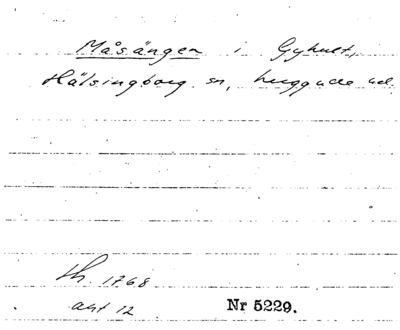 Måsängen i Gyhult,
Hälsingborg sn, Luggude hd
th. 1768
akt 12 Nr 5229.